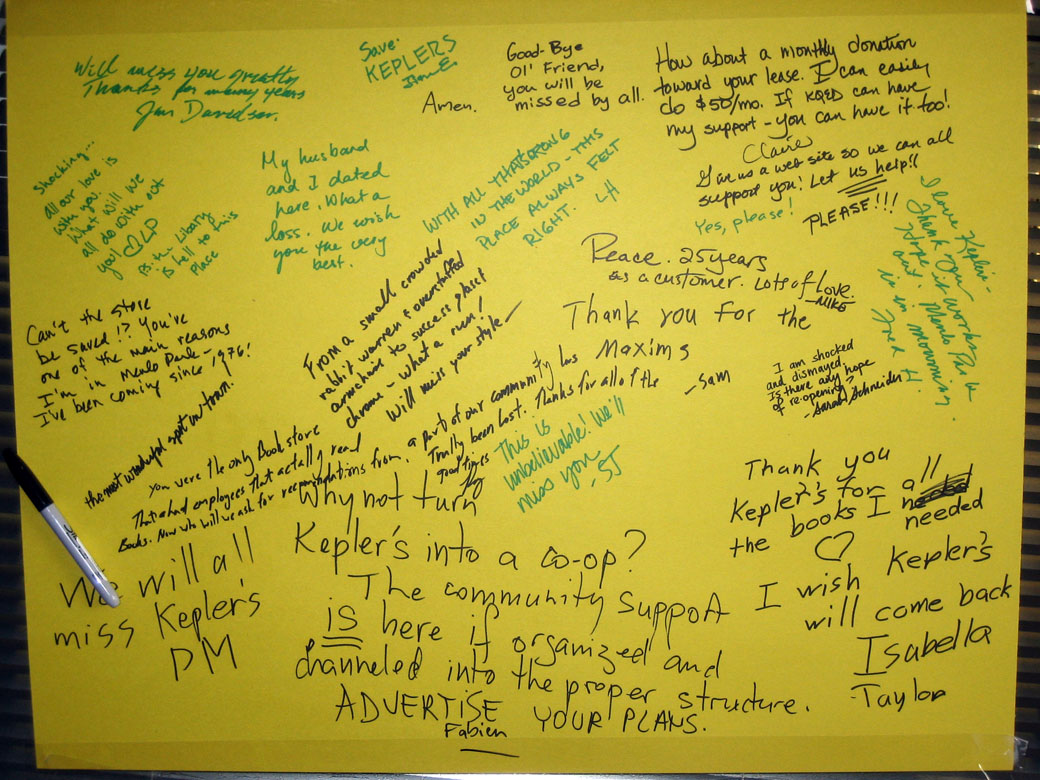 Will miss you greatly
Thanks for many years
Jim Davidson.
Save
KEPLERS
Amen.
Good-Bye
Ol' Friend,
you will be
missed by all.
How about a monthly donation
toward your lease. I can easily
do $50/mo. If KQED can have
my support - you can have it too!
Claire
Give us a web site so we can all
support you! Let us help!!
Yes, please!
PLEASE!!!
shocking...
all our love is
with you.
What will we
all do with out
you! ♡ LP
P.S. the Library
is hell to this
place
My husband
and I dated
here. What a
loss. We wish
you the very
best.
WITH ALL THAT'S WRONG
IN THE WORLD - THIS
PLACE ALWAYS FELT
RIGHT. LH
I love Kepler's -
Thank you
Hope it works
out. Menlo Park
is in mourning.
Fred H.
Peace. 25 years
as a customer. Lots of Love.
- MIKE
Can't the store
be saved!? You've
one of the main reasons
I'm in Menlo Park -
I've been coming since 1976!
the most wonderful spot in town.
From a small crowded
rabbit warren & overstuffed
armchairs to success glass &
chrome - what a run!
Will miss your style -
Thank you for the
Maxims
- Sam
I am shocked
and dismayed
Is there any hope
of re-opening?
- Sarah Schneider
You were the only Bookstore
That had employees that actally read
Books. Now who will we ask for recommendations from. a part of our community has
Trully been Lost. Thanks for all of the
good times
This is
unbelievable! We'll
miss you
- SJ
Thank you
Kepler's for all
the books I needed
♡
I wish Kepler's
will come back
Isabella
Taylor
We will all
miss Kepler's
DM
Why not turn
Kepler's into a co-op?
The community support
is here if organized and
channeled into the proper structure.
ADVERTISE YOUR PLANS.
Fabien